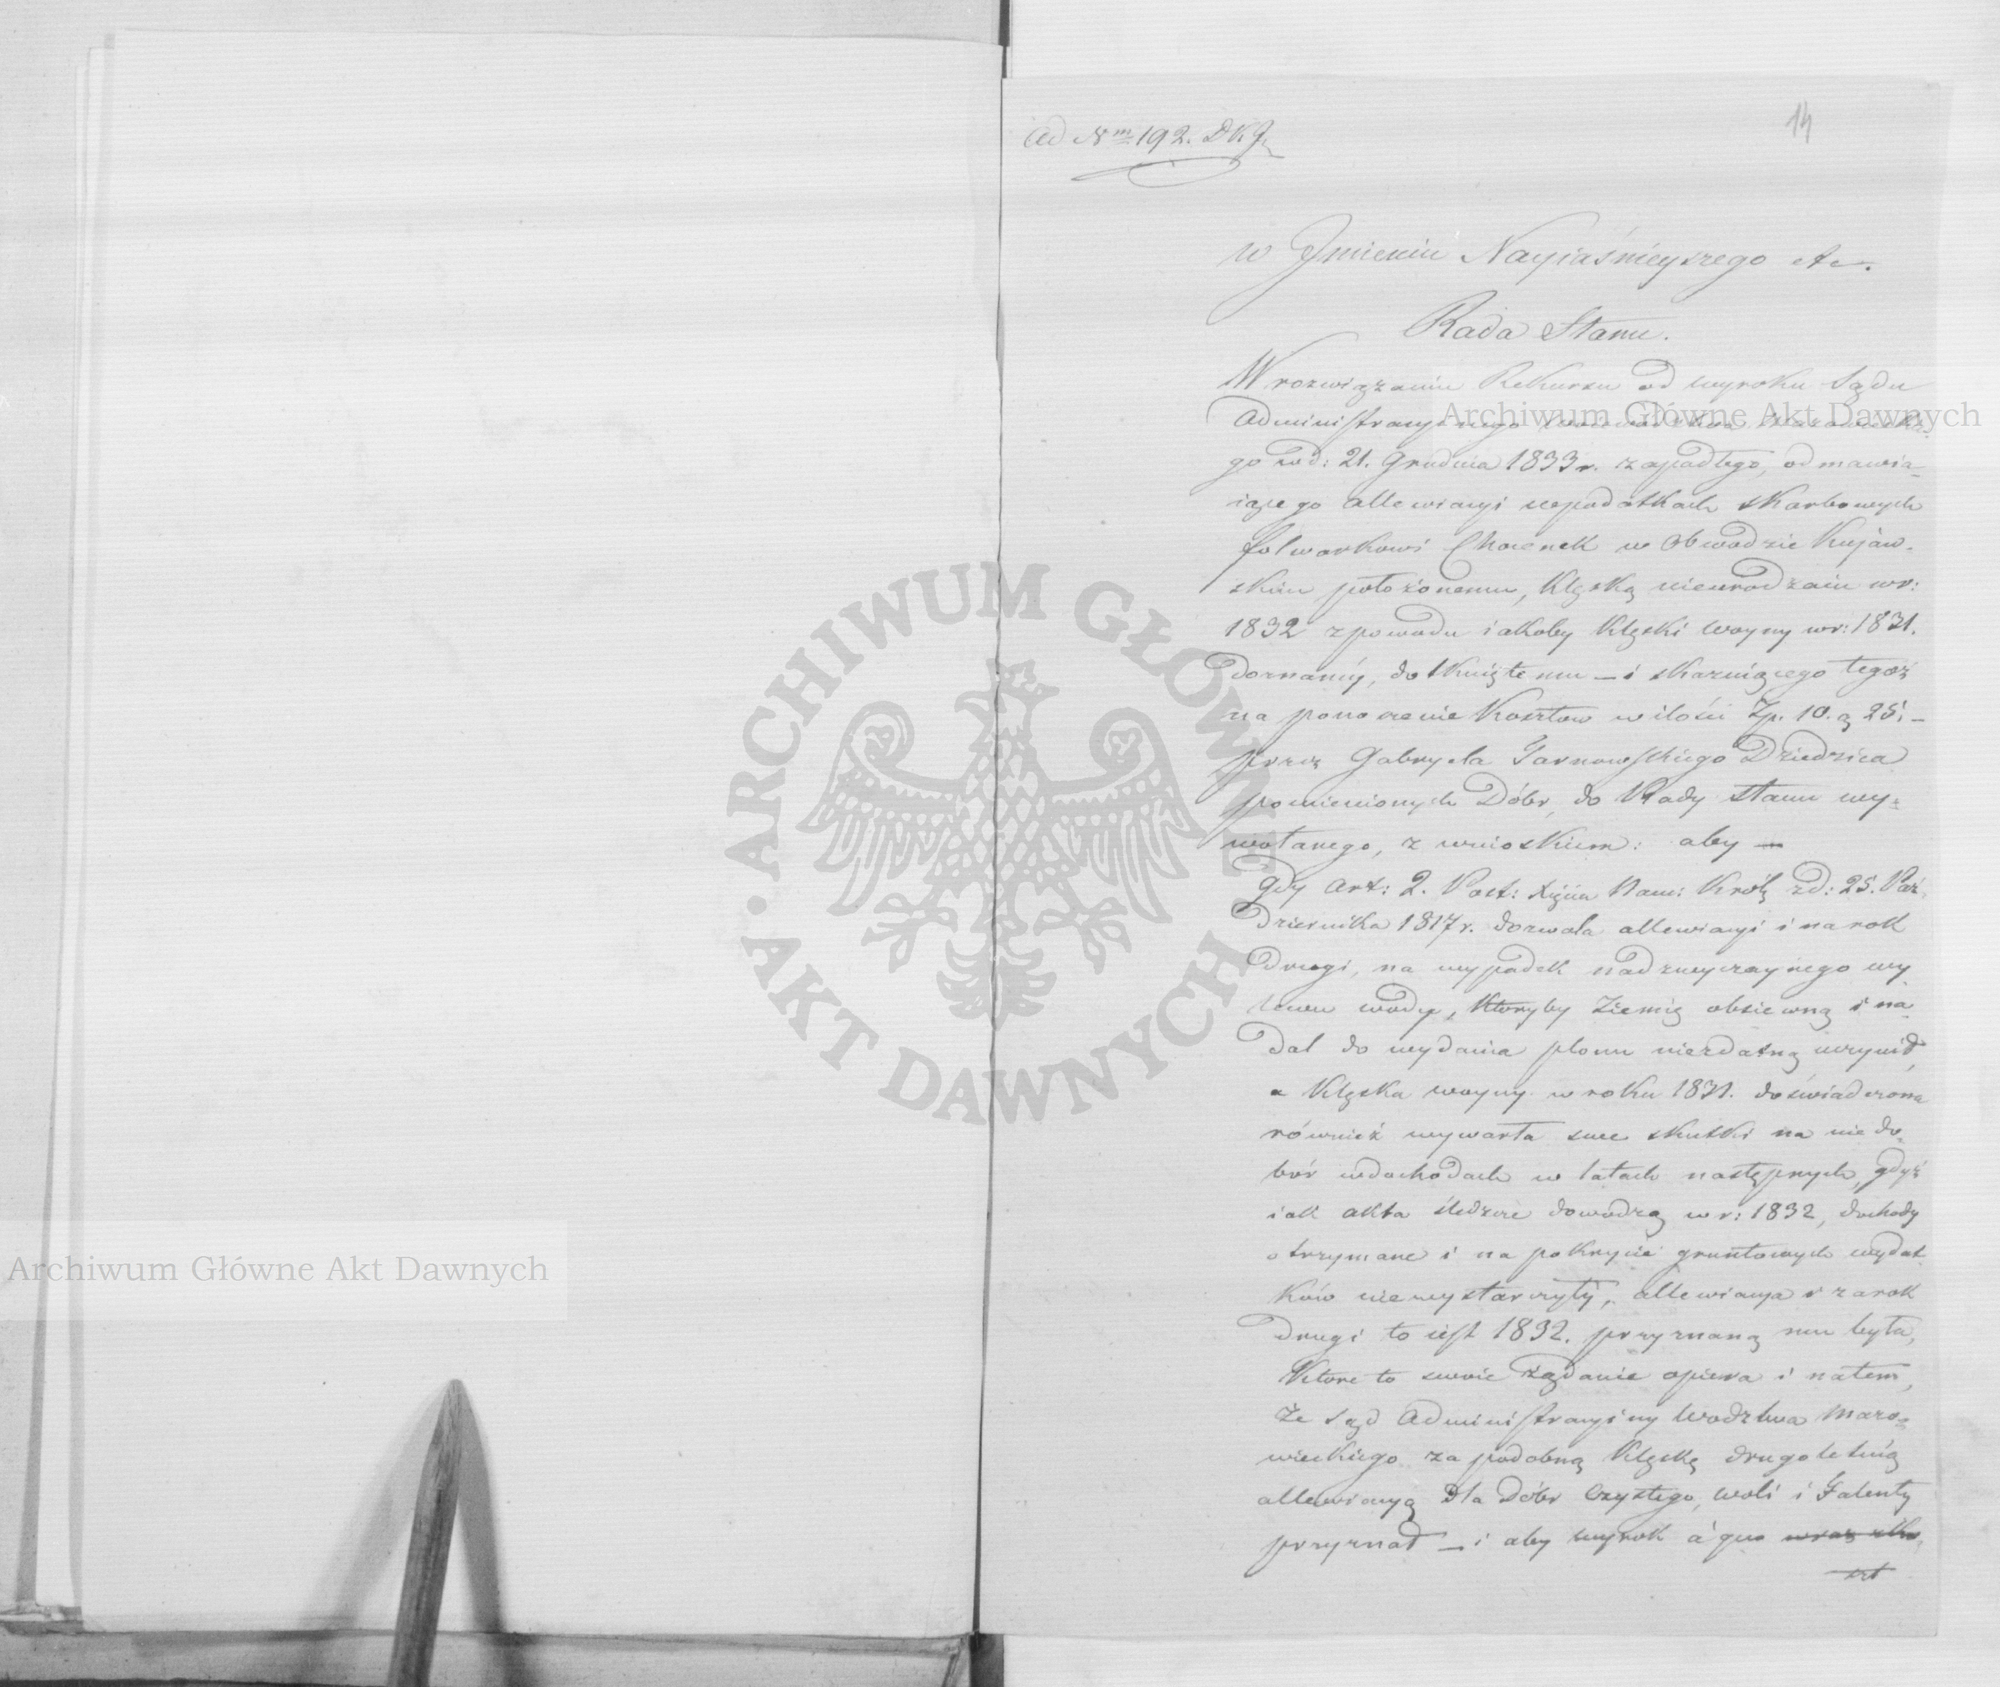 14
Ad Nrm 192. DKJ.
w Jmieniu Nayiaśnieyszego etc.
Rada Stanu.
W rozwiązaniu Rekursu od wyroku Sądu
Administracyinego Woiewództwa Mazowieckie
go z d: 21. Grudnia 1833 r. zapadłego, odmawia-
iącego allewiacyi w podatkach skarbowych
folwarkowi w Obwodzie Kujaw-
skim położonemu, klęską nieurodzaiu w r:
1832 z powodu iakoby klęski woyny w r: 1831.
doznaney, dotkniętemu — i skazuiącego tegoż
na ponoszenie kosztów w ilości Zp. 10. g 25. –
przez Gabryela Tarnowskiego Dziedzica
pomienionych Dóbr, do Rady Stanu wy-
wołanego, z wnioskiem: aby —
gdy art: 2. Post: Xięcia Nam: Król: z d: 25. Paź-
dziernika 1817 r. dozwala allewiacyi i na rok
drugi, na wypadek nadzwyczaynego wy-
lewu wody, któryby ziemię obsiewną i na-
dal do wydania plonu niezdatną uczynił,
a klęska woyny w roku 1831. doświadczona
również wywarła swe skutki na niedo-
bór w dochodach w latach następnych, gdyż
iak akta śledcze dowodzą w r: 1832, dochody
otrzymane i na pokrycie gruntowych wydat-
ków niewystarczyły, allewiacya i za rok
drugi to iest 1832. przyznaną mu była,
które to swoie żądanie opiera i na tem,
że Sąd Administracyiny Wodztwa Mazo-
wieckiego za podobną klęskę drugoletnią
allewiacyą dla Dóbr Czystego, Woli i
przyznał — i aby wyrok a quo wraz z ko-
szt
Archiwum Główne Akt Dawnych
Archiwum Główne Akt Dawnych
ARCHIWUM GŁÓWNE • AKT DAWNYCH